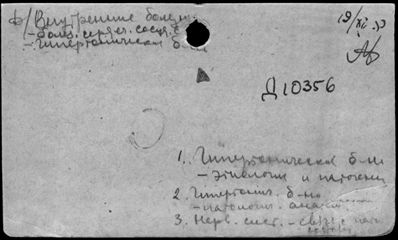 ф/Внутренние болезни
- бол. сердеч. сосуд. с
- Гипертоническая б-нь
19/XI 53
Д 10356
1. Гипертоническая б-нь
- этиология и патогенез
2. Гипертонич. б-нь
- патологич. анатом.
3. Нерв. сист. - связь с